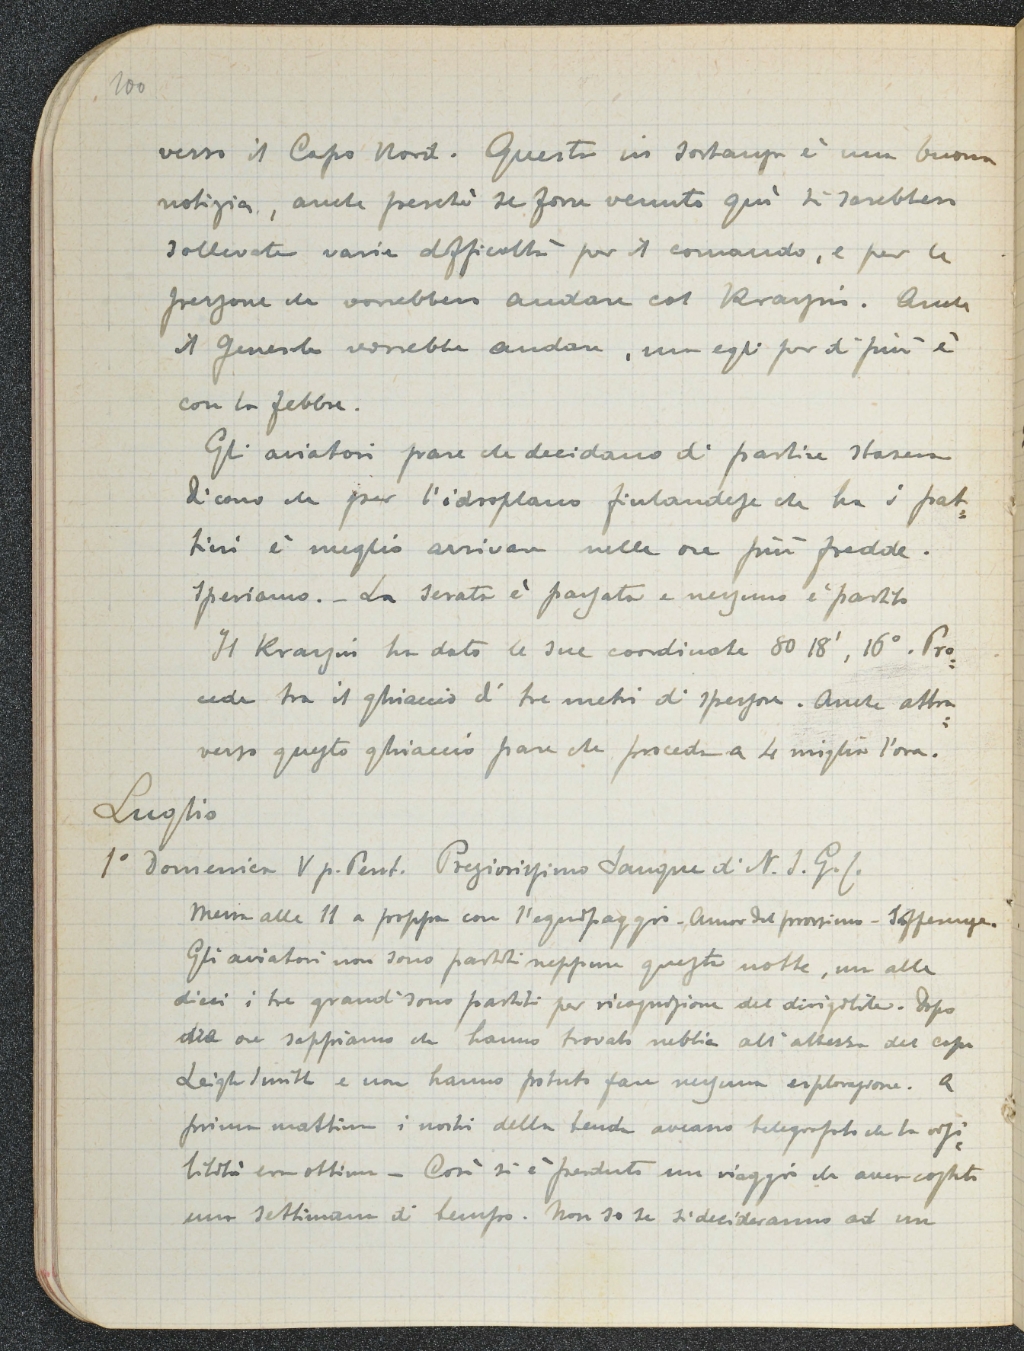 100
verso il Capo Nord. Questa in sostanza è una buona
notizia, anche perché se fosse venuto quì si sarebbero
sollevate varie difficoltà per il comando, e per le
persone che vorrebbero andare col Krassin. Anche
il Generale vorrebbe andare, ma egli per di più è
con la febbre.
Gli aviatori pare che decidano di partire stasera
Dicono che per l'idroplano finlandese che ha i pat=
tini è meglio arrivare nelle ore più fredde.
Speriamo. - La serata è passata e nessuno è partito
Il Krassin ha dato le sue coordinate 80 18', 16°. Pro=
cede tra il ghiaccio di tre metri di spessore. Anche attra=
verso questo ghiaccio pare che proceda a 4 miglia l'ora.
Luglio
1° Domenica V p. Pent. Preziosissimo Sangue di N. S. G. C.
Messa alle 11 a poppa con l'equipaggio - Amor del prossimo - Sofferenze.
Gli aviatori non sono partiti neppure questa notte, ma alle
dieci i tre grandi sono partiti per ricognizione del dirigibile. Dopo
due ore sappiamo che hanno trovato nebbia all'altezza del capo
Leigh Smith e non hanno potuto fare nessuna esplorazione. A
prima mattina i nostri della tenda aveano telegrafato che la visi=
bilità era ottima - Così si è perduto un viaggio che aver costato
una settimana di tempo. Non so se si decideranno ad un